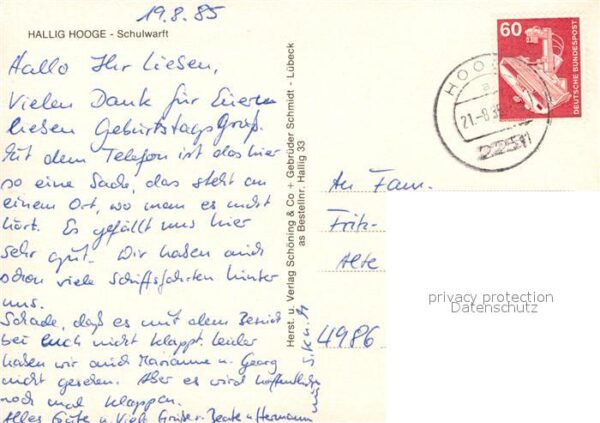 19.8.85
HALLIG HOOGE - Schulwarft
Hallo Ihr Lieben,
Vielen Dank für Eueren
lieben Geburtstagsgruß.
Mit dem Telefon ist das hier
so eine Sache, das steht an
einem Ort, wo man es nicht
hört. Es gefällt uns hier
sehr gut. Wir haben auch
schon viele Schiffsfahrten hinter
uns.
Schade, daß es mit dem Besuch
bei Euch nicht klappt. Leider
haben wir auch Marianne u. Georg
nicht gesehen. Aber es wird hoffentlich
noch mal klappen.
Alles Gute u. Viele Grüße v. Beate u. Hermann
Herst. u. Verlag Schöning & Co + Gebrüder Schmidt - Lübeck
as Bestellnr. Hallig 33
60
DEUTSCHE BUNDESPOST
HOOGE
21.-8.85
2251
An Fam.
Fritz
Alte
4986
privacy protection
Datenschutz